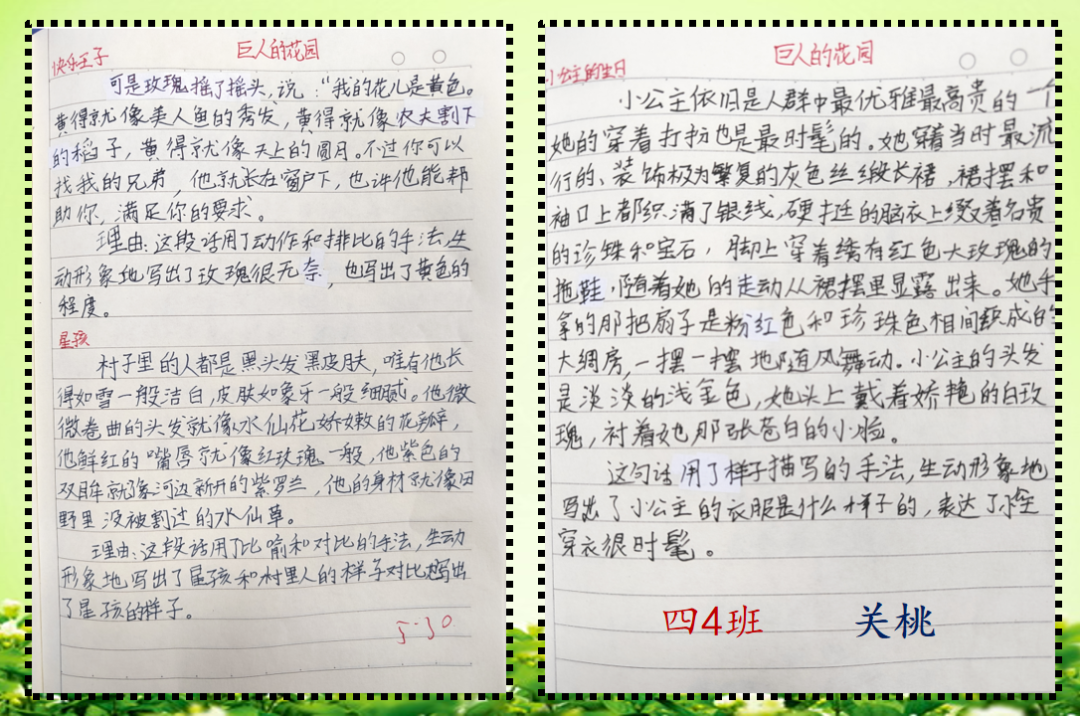 巨人的花园
快乐王子
可是玫瑰摇了摇头，说：“我的花儿是黄色。
黄得就像美人鱼的秀发，黄得就像农夫割下
的稻子，黄得就像天上的圆月。不过你可以
找我的兄弟，他就长在窗户下，也许他能帮
助你，满足你的要求。
理由：这段话用了动作和排比的手法，生
动形象地写出了玫瑰很无奈，也写出了黄色的
程度。
星孩
村子里的人都是黑头发黑皮肤，唯有他长
得如雪一般洁白，皮肤如象牙一般细腻。他微
微卷曲的头发就像水仙花娇嫩的花瓣，
他鲜红的嘴唇就像红玫瑰一般，他紫色的
双眸就像河边新开的紫罗兰，他的身材就像田
野里没被割过的水仙草。
理由：这段话用了比喻和对比的手法，生动
形象地写出了星孩和村里人的样子对比写出
了星孩的样子。
5·30
巨人的花园
小公主的生日
小公主依旧是人群中最优雅最高贵的一个
她的穿着打扮也是最时髦的。她穿着当时最流
行的、装饰极为繁复的灰色丝缎长裙，裙摆和
袖口上都织满了银线，硬挺的胸衣上缀着名贵
的珍珠和宝石，脚上穿着绣有红色大玫瑰的
拖鞋，随着她的走动从裙摆里显露出来。她手
拿的那把扇子是粉红色和珍珠色相间织成的
大绸房，一摆一摆地随风舞动。小公主的头发
是淡淡的浅金色，她头上戴着娇艳的白玫
瑰，衬着她那张苍白的小脸。
这句话用了样子描写的手法，生动形象地
写出了小公主的衣服是什么样子的，表达了
穿衣很时髦。
四4班 关桃